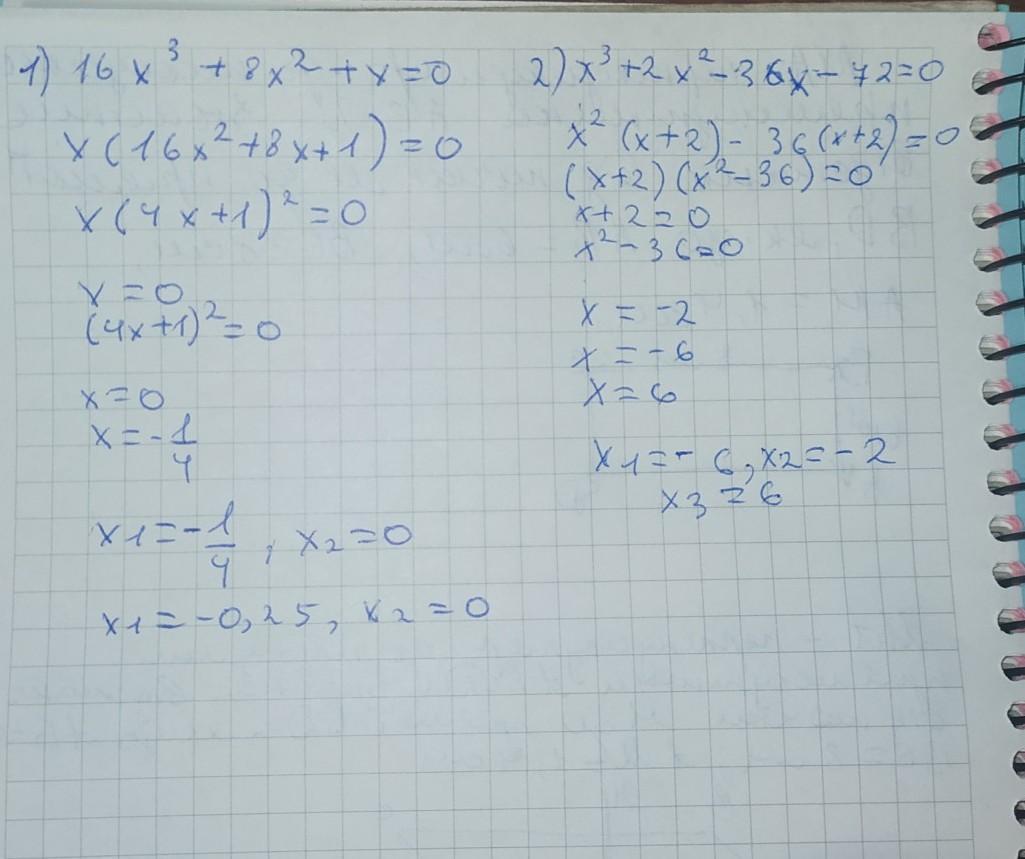 1) 16x³ + 8x² + x = 0
x(16x² + 8x + 1) = 0
x(4x + 1)² = 0
x = 0
(4x+1)² = 0
x = 0
x = -1/4
x1 = -1/4, x2 = 0
x1 = -0,25, x2 = 0
2) x³ + 2x² - 36x - 72 = 0
x² (x+2) - 36(x+2) = 0
(x+2)(x² - 36) = 0
x + 2 = 0
x² - 36 = 0
x = -2
x = -6
x = 6
x1 = -6, x2 = -2
x3 = 6